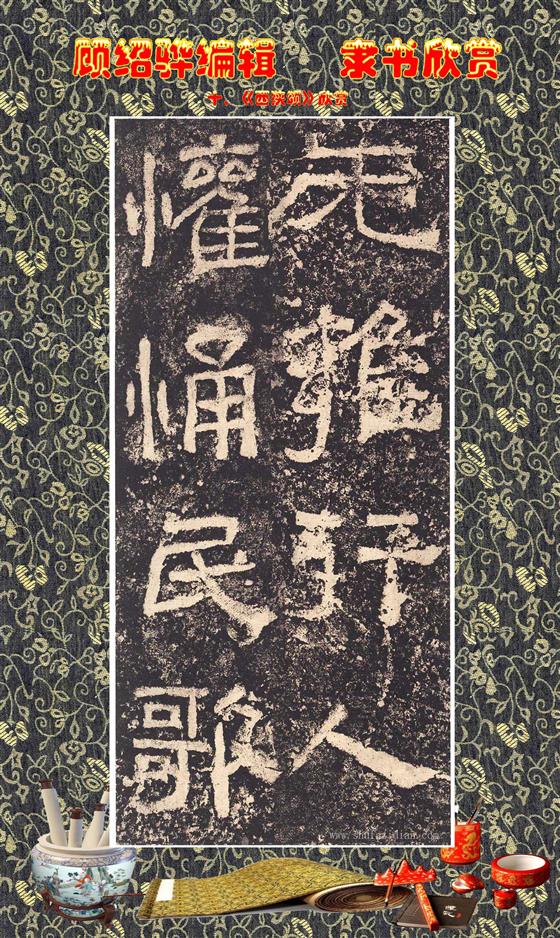 顾绍骅编辑 隶书欣赏
十、《西狭颂》欣赏
无雍行人
懽悀民歌
www.shufazidian.com